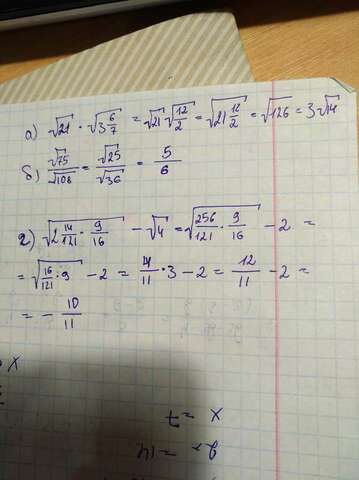 а) √21 · √(3 6/7) = √21 √(12/2) = √(21 12/2) = √126 = 3√14
б) √75/√108 = √25/√36 = 5/6
г) √(2 14/121 · 9/16) - √4 = √(256/121 · 9/16) - 2 =
= √(16/121 · 9) - 2 = 4/11 · 3 - 2 = 12/11 - 2 =
= - 10/11
x = 7